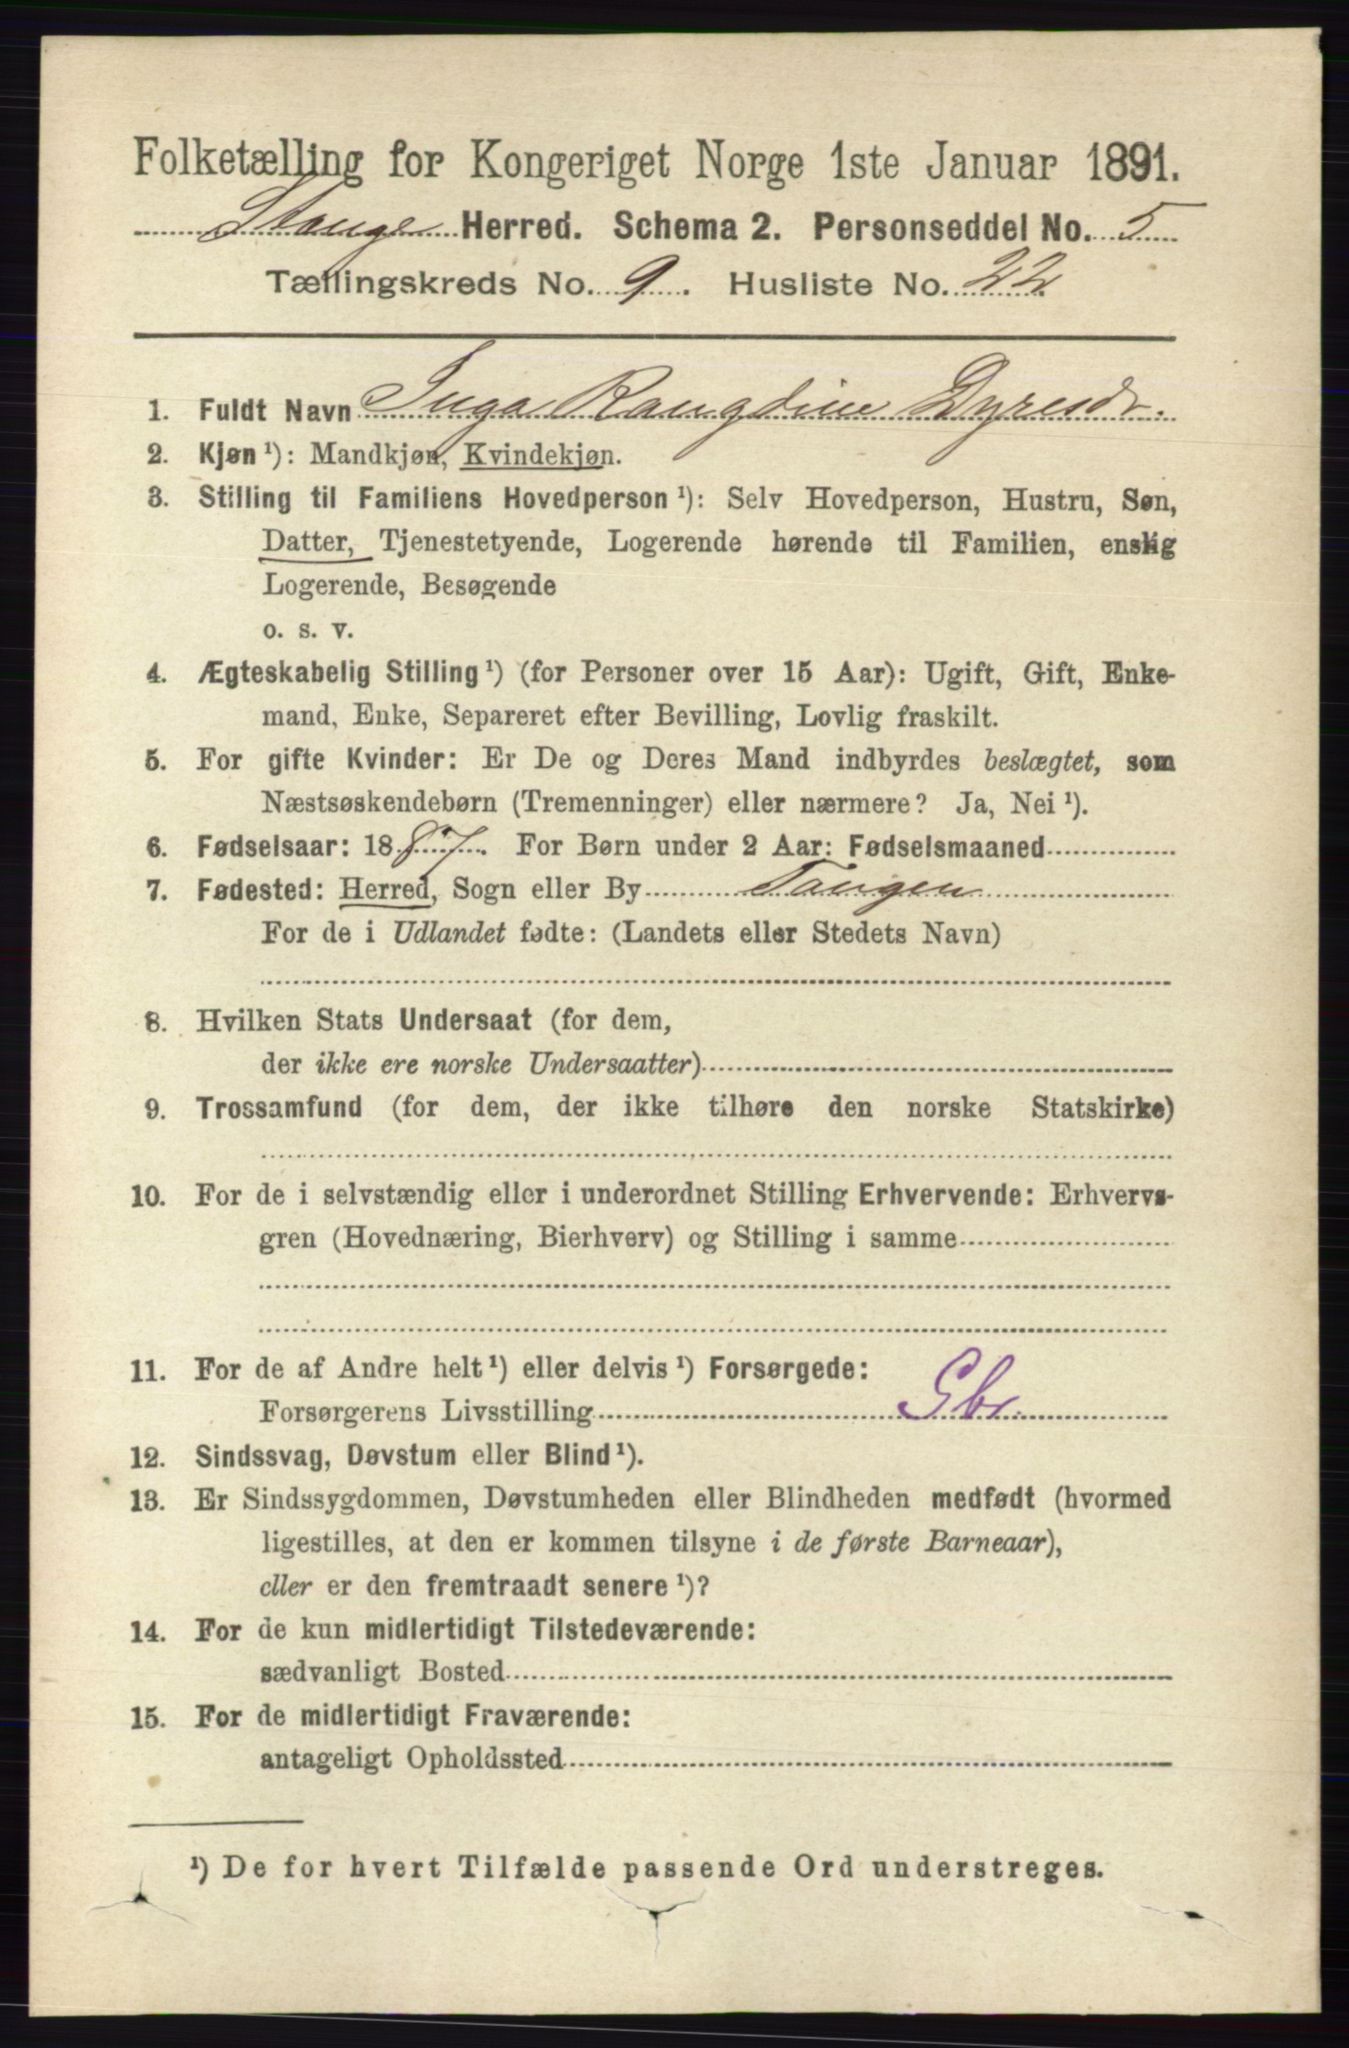 Folketælling for Kongeriget Norge 1ste Januar 1891.
Stange Herred. Schema 2. Personseddel No. 5
Tællingskreds No. 9. Husliste No. 22.
1. Fuldt Navn Inga Rangdine Dyresdr.
2. Kjøn ¹): Mandkjøn, Kvindekjøn.
3. Stilling til Familiens Hovedperson ¹): Selv Hovedperson, Hustru, Søn,
Datter, Tjenestetyende, Logerende hørende til Familien, enslig
Logerende, Besøgende
o. s. v.
4. Ægteskabelig Stilling ¹) (for Personer over 15 Aar): Ugift, Gift, Enke-
mand, Enke, Separeret efter Bevilling, Lovlig fraskilt.
5. For gifte Kvinder: Er De og Deres Mand indbyrdes beslægtet, som
Næstsøskendebørn (Tremenninger) eller nærmere? Ja, Nei ¹).
6. Fødselsaar: 1887. For Børn under 2 Aar: Fødselsmaaned
7. Fødested: Herred, Sogn eller By Tangen
For de i Udlandet fødte: (Landets eller Stedets Navn)
8. Hvilken Stats Undersaat (for dem,
der ikke ere norske Undersaatter)
9. Trossamfund (for dem, der ikke tilhøre den norske Statskirke)
10. For de i selvstændig eller i underordnet Stilling Erhvervende: Erhvervs-
gren (Hovednæring, Bierhverv) og Stilling i samme
11. For de af Andre helt ¹) eller delvis ¹) Forsørgede:
Forsørgerens Livsstilling Gbr.
12. Sindssvag, Døvstum eller Blind ¹).
13. Er Sindssygdommen, Døvstumheden eller Blindheden medfødt (hvormed
ligestilles, at den er kommen tilsyne i de første Barneaar),
eller er den fremtraadt senere ¹)?
14. For de kun midlertidigt Tilstedeværende:
sædvanligt Bosted
15. For de midlertidigt Fraværende:
antageligt Opholdssted
¹) De for hvert Tilfælde passende Ord understreges.